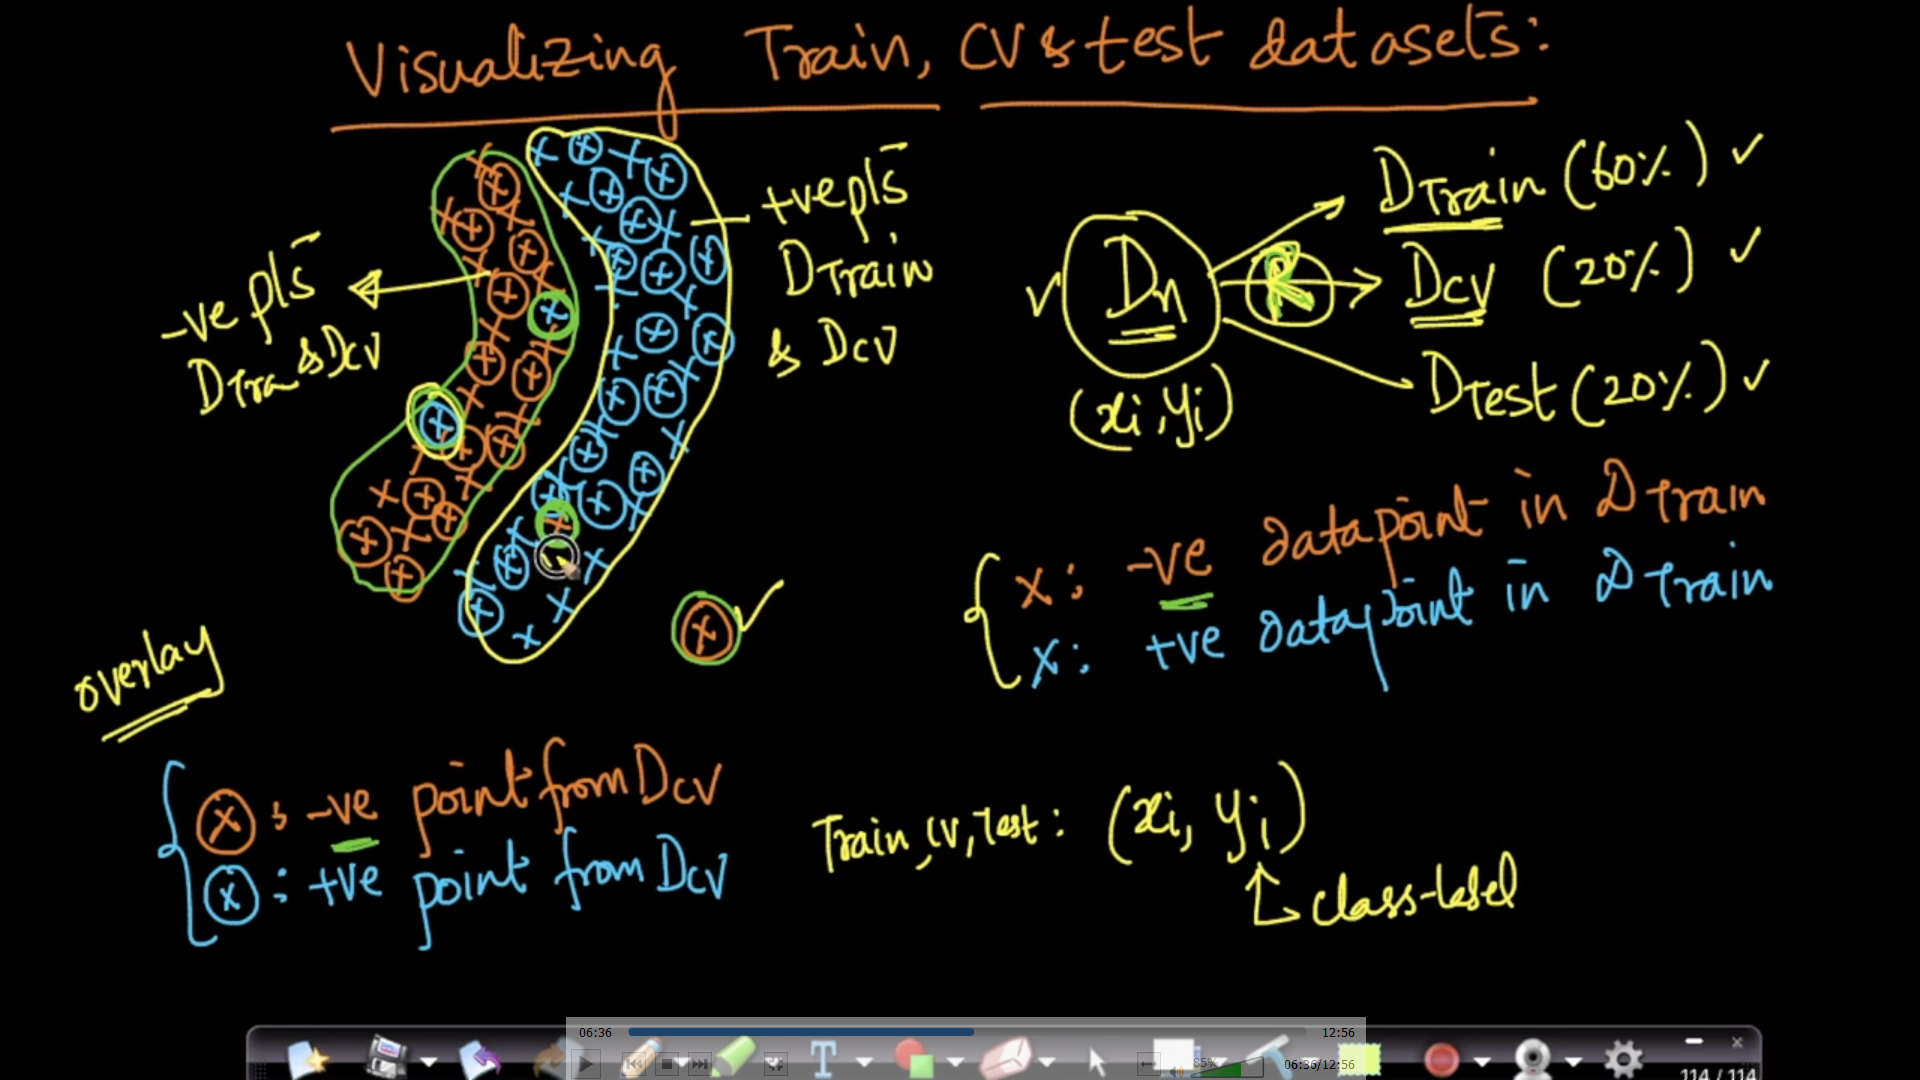 Visualizing Train, CV & test datasets:
+ve pts
DTrain
& DCV
-ve pts
DTra & DCV
Dn
R
(xi, yi)
DTrain (60%) ✓
DCV (20%) ✓
DTest (20%) ✓
x: -ve datapoint in DTrain
x: +ve datapoint in DTrain
overlay
x: -ve point from DCV
x: +ve point from DCV
Train, CV, Test: (xi, yi)
class-label
06:36
12:56
85%
06:36/12:56
114 / 114